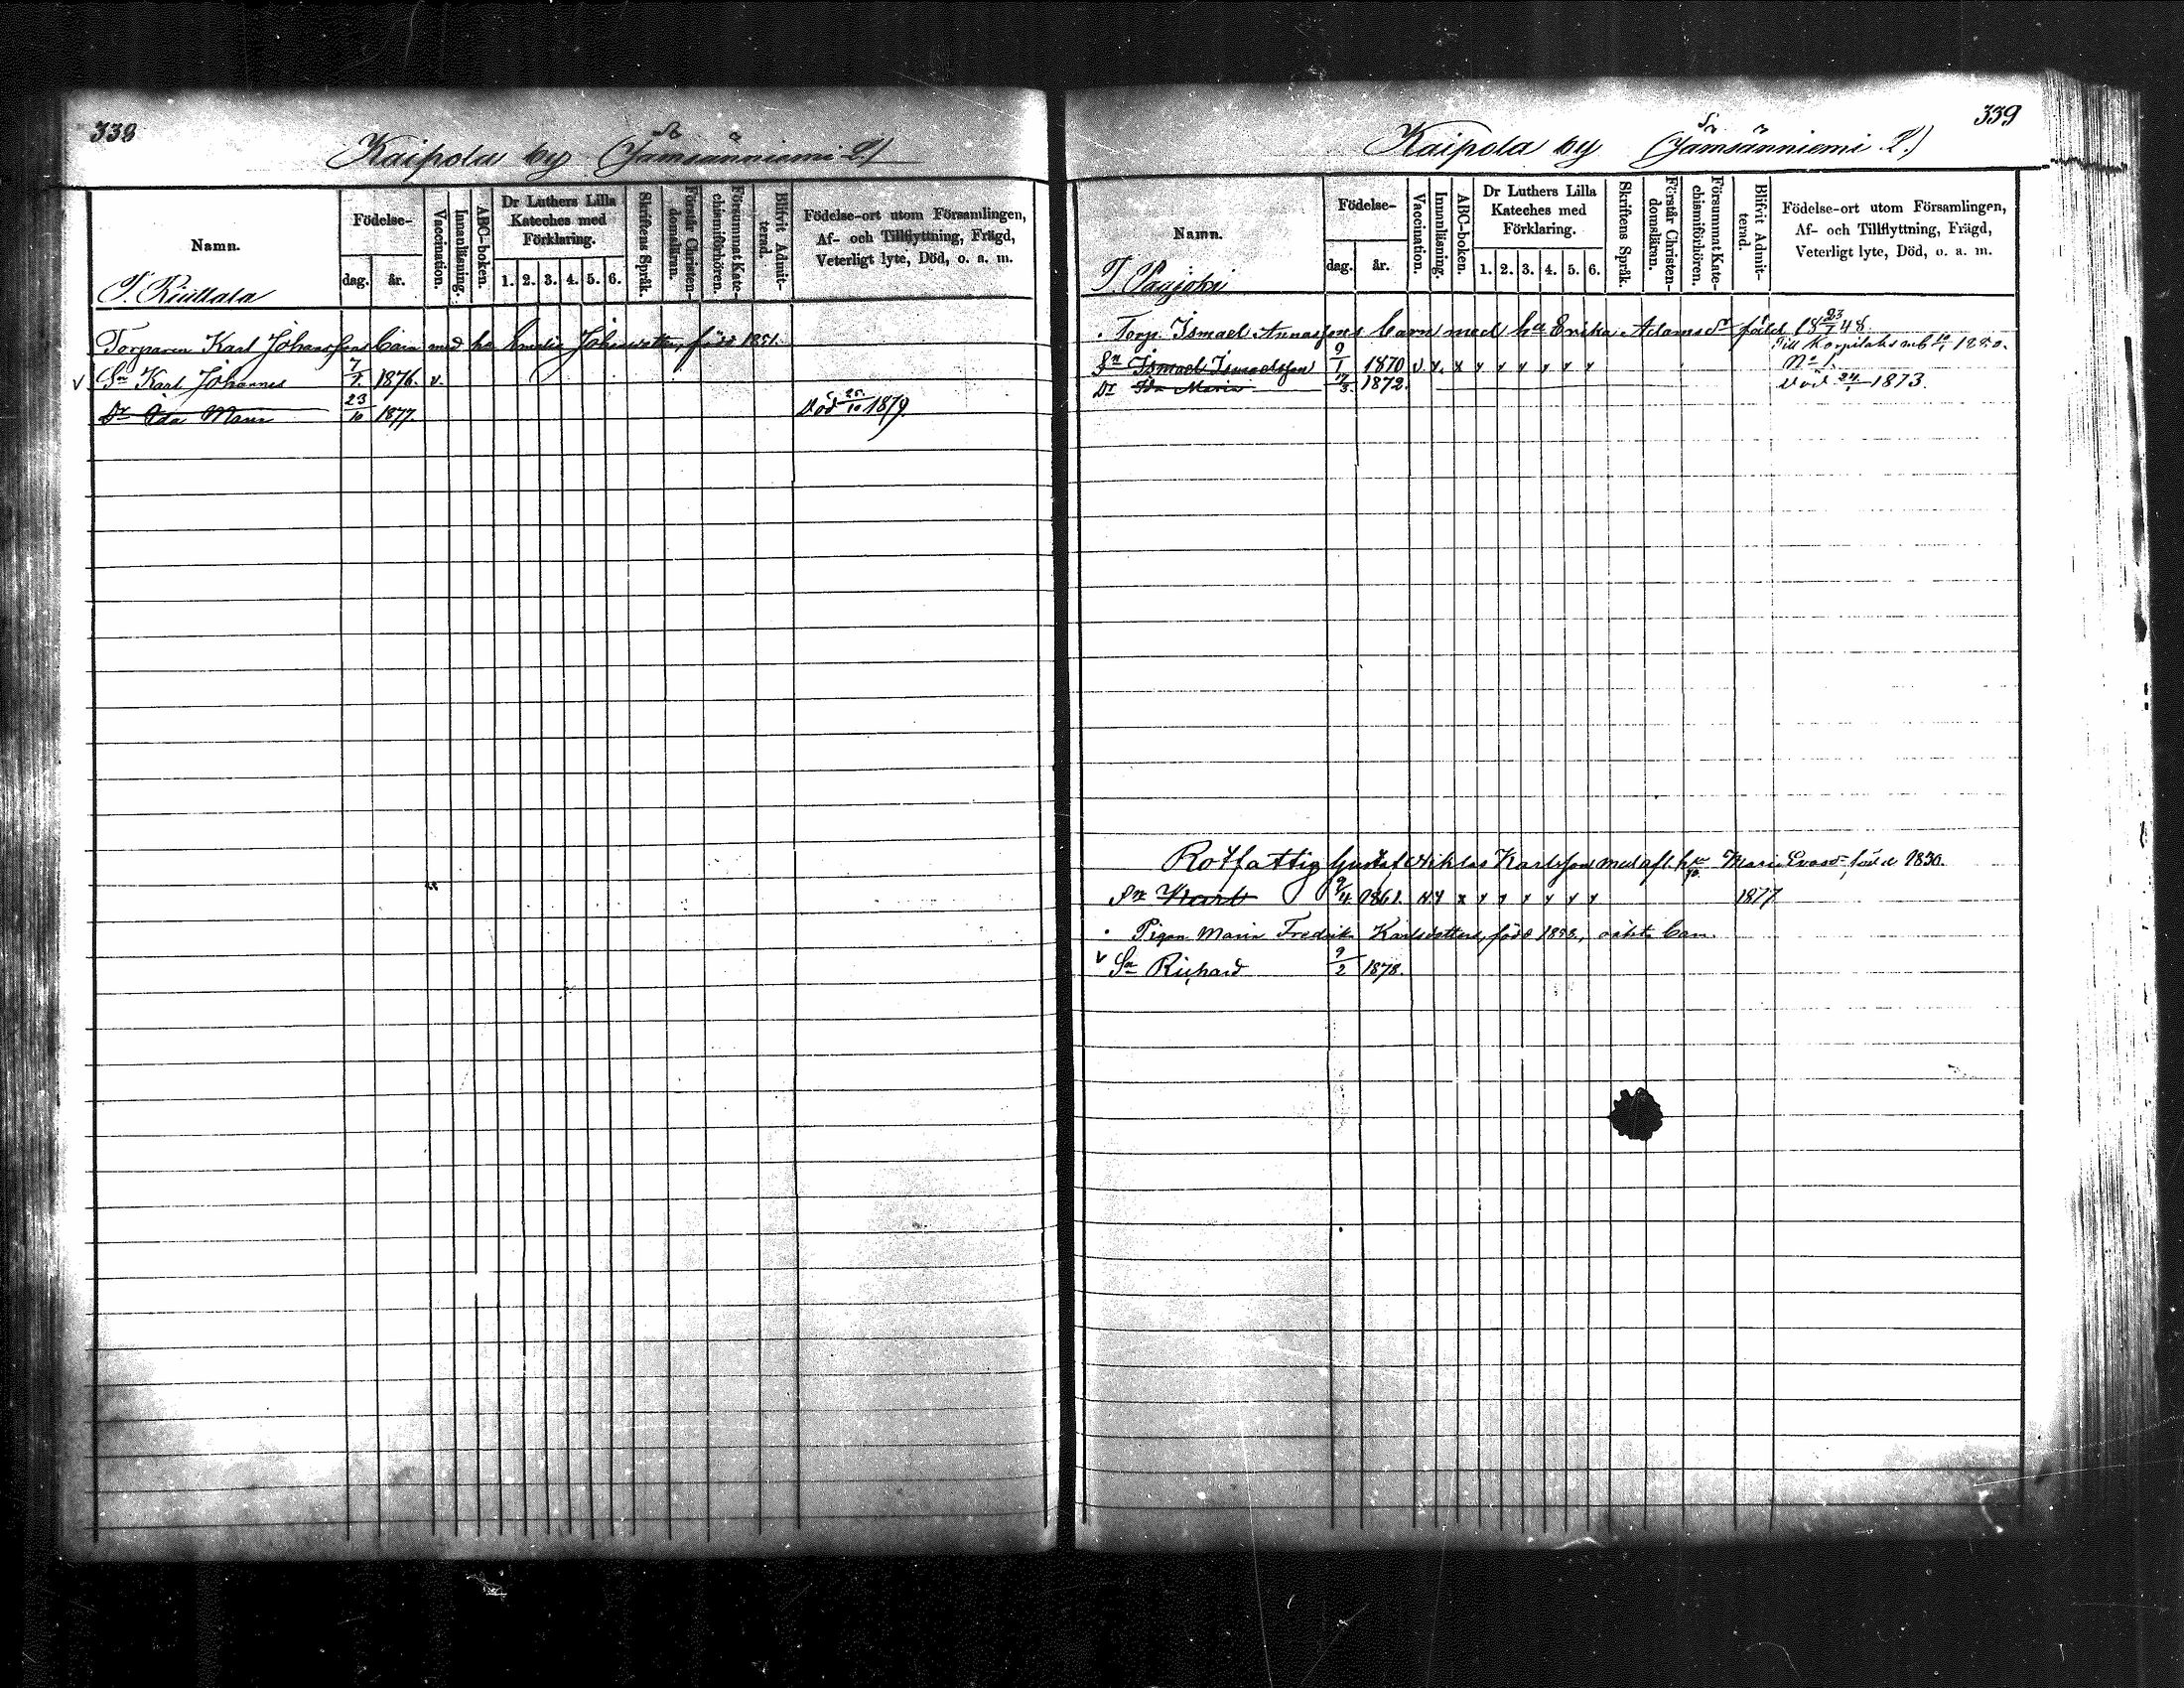 338
Kaipola by (Jämsänniemi 2.)
Namn.
Födelse-
dag.
år.
Vaccination.
Innanläsning.
ABC-boken.
Dr Luthers Lilla
Kateches med
Förklaring.
1. 2. 3. 4. 5. 6.
Skriftens Språk.
Förstår Christen-
domsläran.
Försummat Kate-
chismiförhören.
Blifvit Admit-
terad.
Födelse-ort utom Församlingen,
Af- och Tillflyttning, Frägd,
Veterligt lyte, Död, o. a. m.
T.
Torparen Karl Johanssons barn med hu Emelie Johansdotter, född 1851.
v Sn Karl Johannes 7/7. 1876. v.
Dr Ida Maria 23/10 1877. Död 25/10 1879
339
Kaipola by (Jämsänniemi 2.)
Namn.
Födelse-
dag.
år.
Vaccination.
Innanläsning.
ABC-boken.
Dr Luthers Lilla
Kateches med
Förklaring.
1. 2. 3. 4. 5. 6.
Skriftens Språk.
Förstår Christen-
domsläran.
Försummat Kate-
chismiförhören.
Blifvit Admit-
terad.
Födelse-ort utom Församlingen,
Af- och Tillflyttning, Frägd,
Veterligt lyte, Död, o. a. m.
T. Paajoki
Torp. Ismael Annassons barn med hu Erika Adamsdr född 18 23/7 48.
Till Korpilaks 1880.
Sn Ismael Ismaelsson 9/1 1870 v y. x y y y y y y
Dr Ida Maria 17/3. 1872. Död 24/1 1873.
Rotfattig Gustaf Niklas Karlsson med afl. hu Maria Evasd. född 1830.
Sn Karl 9/4. 1861. x y y y y y y 1877
Pigan Maria Fredrika Karlsdotters, född 1858, oäkta barn.
v Sn Richard 9/2 1878.